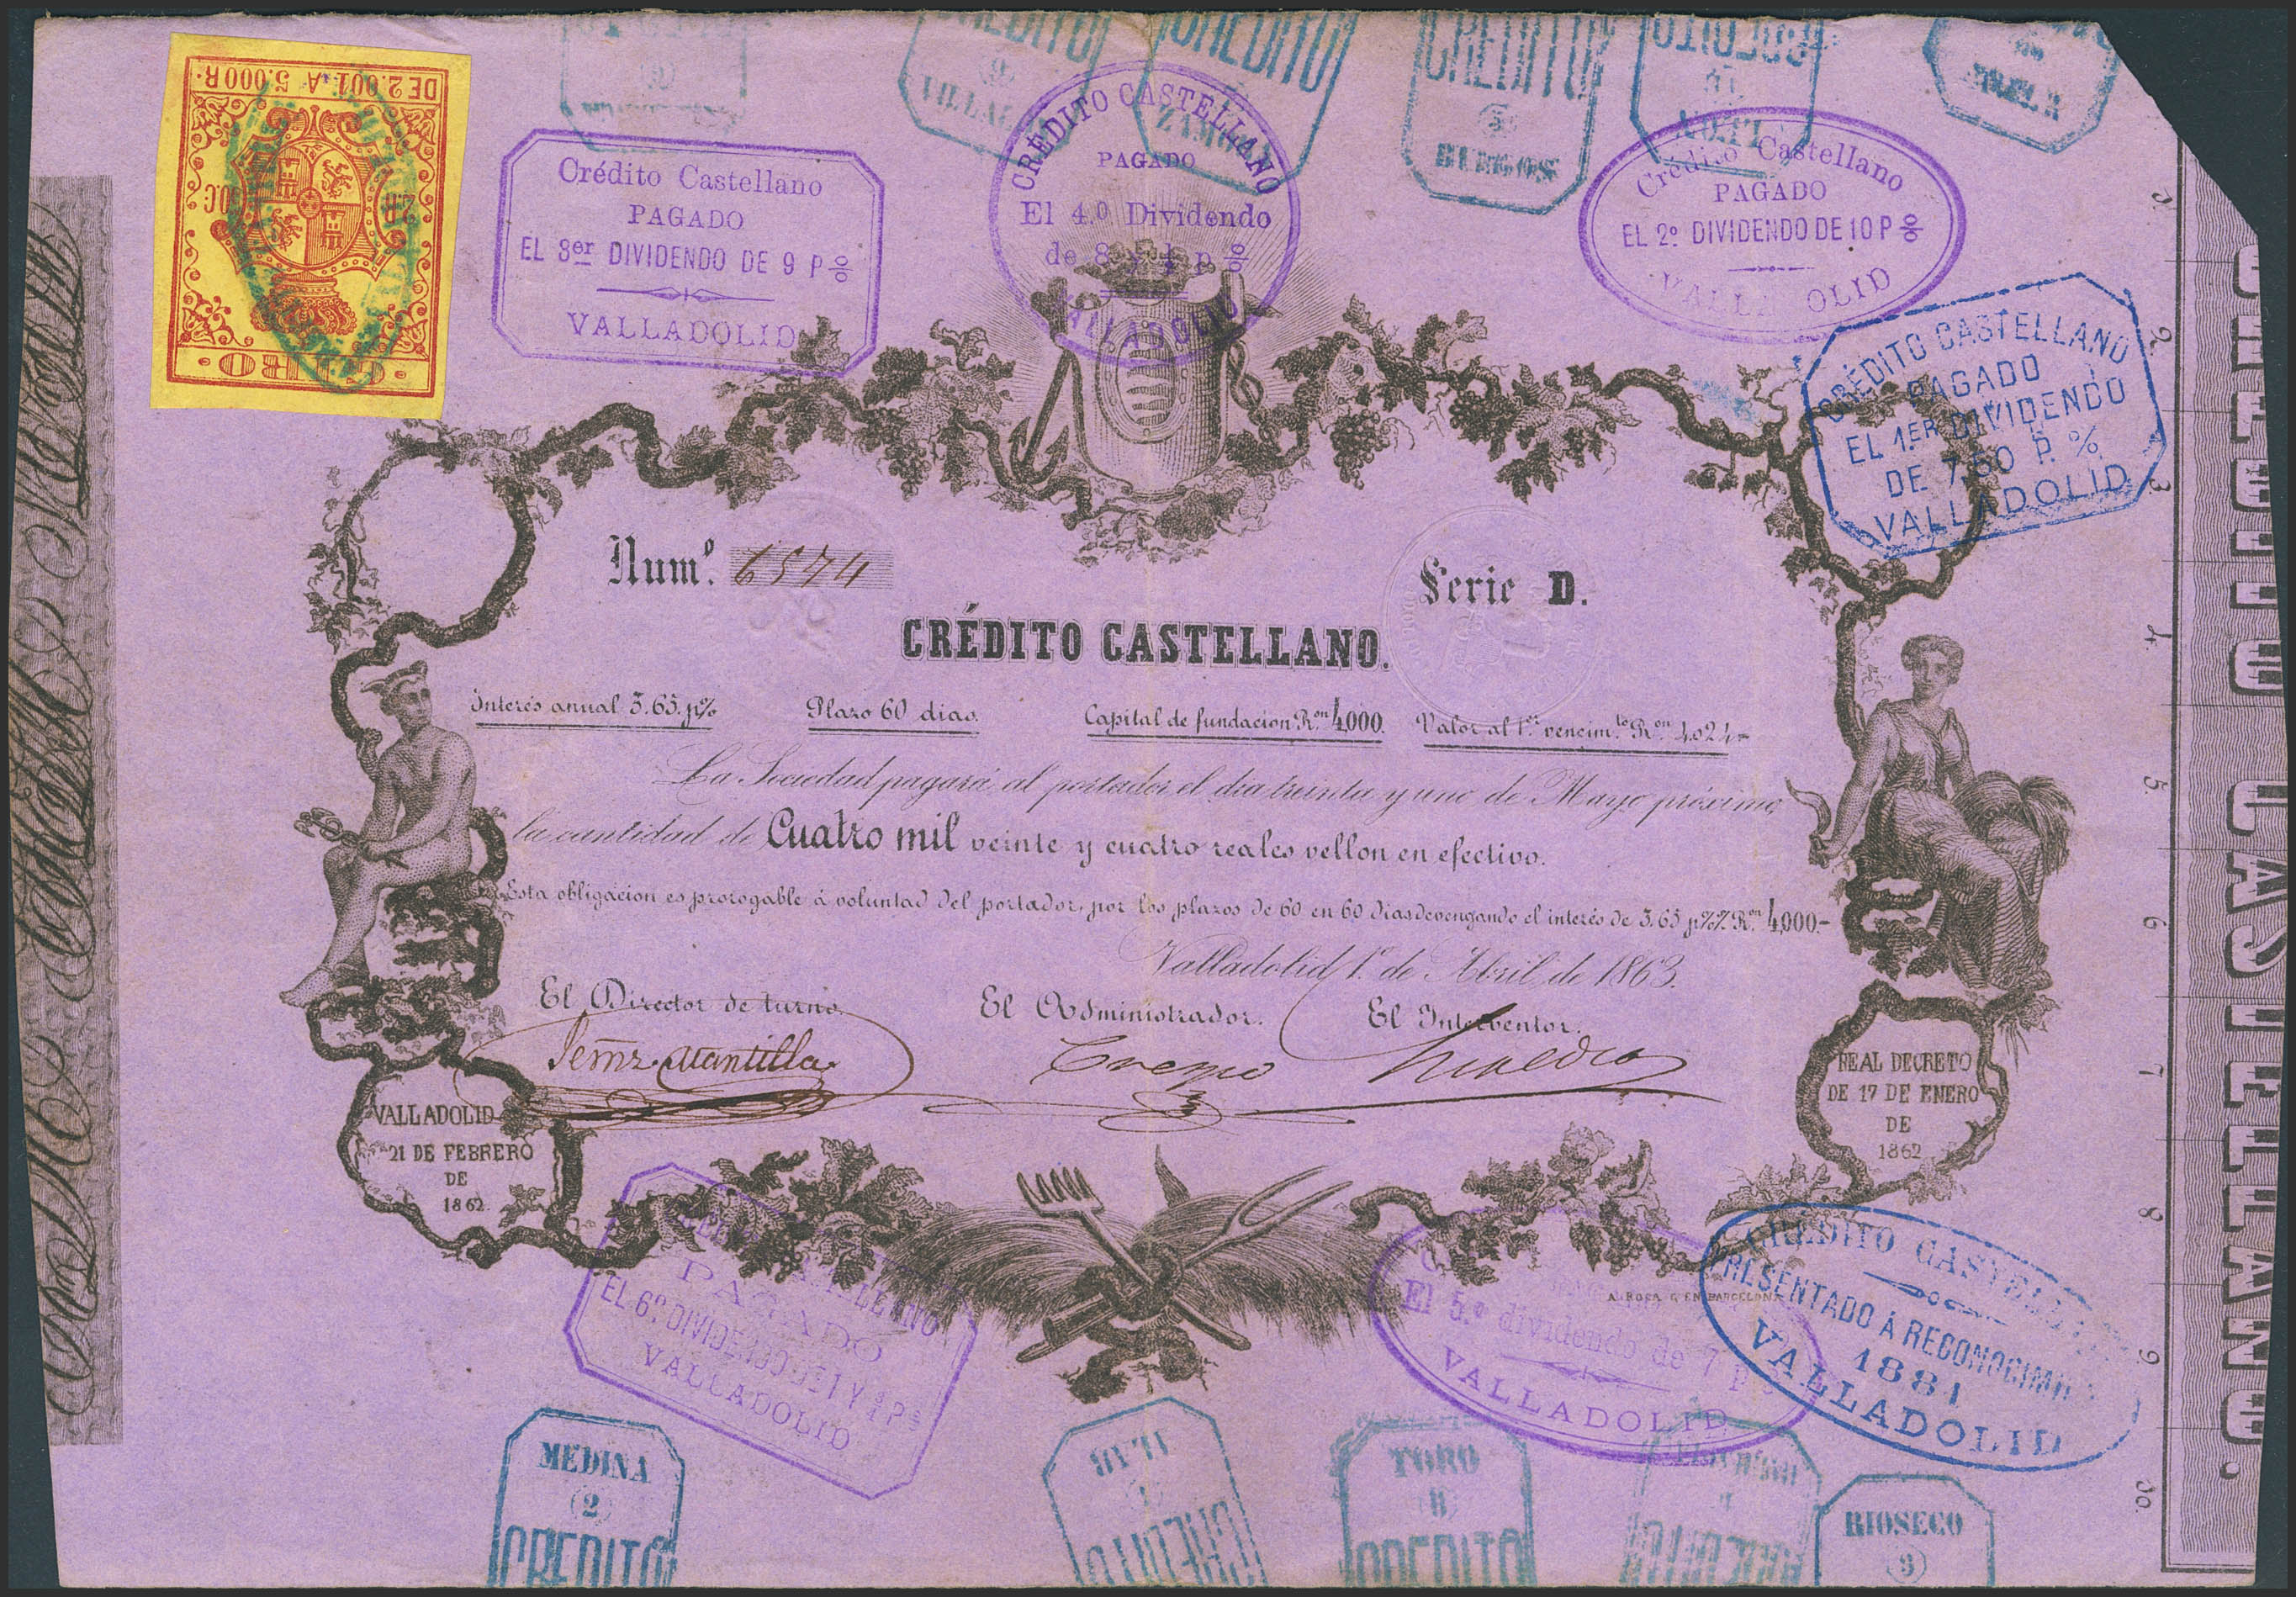 DE 2.001 A 5.000 R.
2 R.
50 C.
GIRO
CREDITO
VILLA
CREDITO
ZAM
CREDITO
5
BURGOS
CREDITO
LEON
Crédito Castellano
PAGADO
EL 3er DIVIDENDO DE 9 P %
VALLADOLID
CRÉDITO CASTELLANO
PAGADO
El 4º Dividendo
de 8 y ½ p %
VALLADOLID
Crédito Castellano
PAGADO
EL 2º DIVIDENDO DE 10 P %
VALLA OLID
CRÉDITO CASTELLANO
PAGADO
EL 1ER DIVIDENDO
DE 7,50 P. %
VALLADOLID
Numº. 6574
Serie D.
CRÉDITO CASTELLANO.
Interés anual 3.65. p%
Plazo 60 dias.
Capital de fundacion R.on 4,000.
Valor al 1er vencim.to R.on 4,024=
La Sociedad pagará al portador el dia treinta y uno de Mayo próximo,
la cantidad de Cuatro mil veinte y cuatro reales vellon en efectivo.
Esta obligacion es prorogable á voluntad del portador, por los plazos de 60 en 60 dias devengando el interés de 3.65 p% R.on 4,000.-
Valladolid 1º de Abril de 1863.
El Director de turno.
El Administrador.
El Interventor.
VALLADOLID
21 DE FEBRERO
DE
1862.
REAL DECRETO
DE 17 DE ENERO
DE
1862
PAGADO
EL 6º DIVIDENDO DE 1 Y
VALLADOLID
El 5.º dividendo de 7 p
VALLADOLID
A. ROCA G. EN BARCELONA
CRÉDITO CASTELLANO
PRESENTADO Á RECONOCIM
1881
VALLADOLID
MEDINA
2
CREDITO
CREDITO
TORO
8
CREDITO
RIOSECO
3
2.
3
4
5.
6
7
8
9.
10.
CREDITO CASTELLANO.